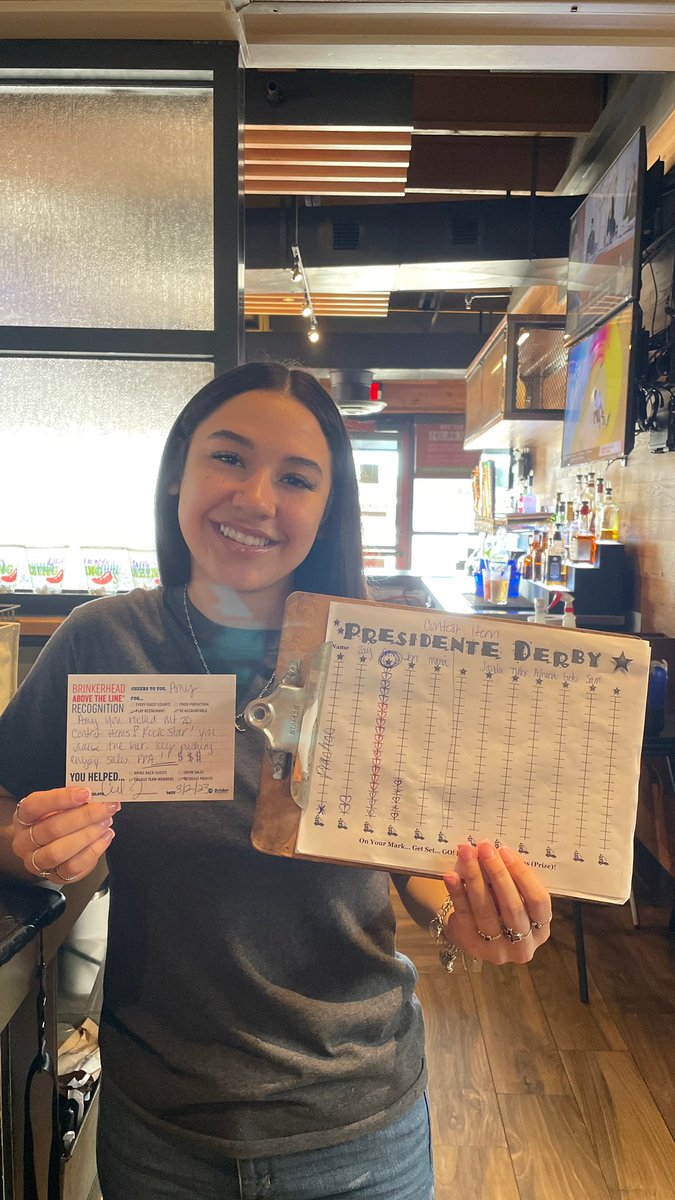 BRINKERHEAD
ABOVE THE LINE
RECOGNITION
CHEERS TO YOU, Amy
FOR...
EVERY GUEST COUNTS
FOOD PERFECTION
PLAY RESTAURANT
BE ACCOUNTABLE
Amy you rocked out 20
contest items! Rock star! you
raise the bar. Keep pushing
enjoy sales PPA!! $$$
YOU HELPED...
BRING BACK GUESTS
GROW SALES
ENGAGE TEAM MEMBERS
INCREASE PROFITS
DATE 3/2/23
Brinker
Contest Item
PRESIDENTE DERBY
Name
Zay
Jen
Mama
Jayla
Tyler
Sam
practice
On Your Mark... Get Set... GO!
(Prize)!